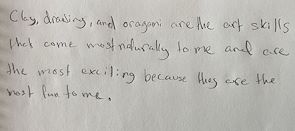 Clay, drawing, and oragami are the art skills
that come most naturally to me and are
the most exciting because they are the
most fun to me.